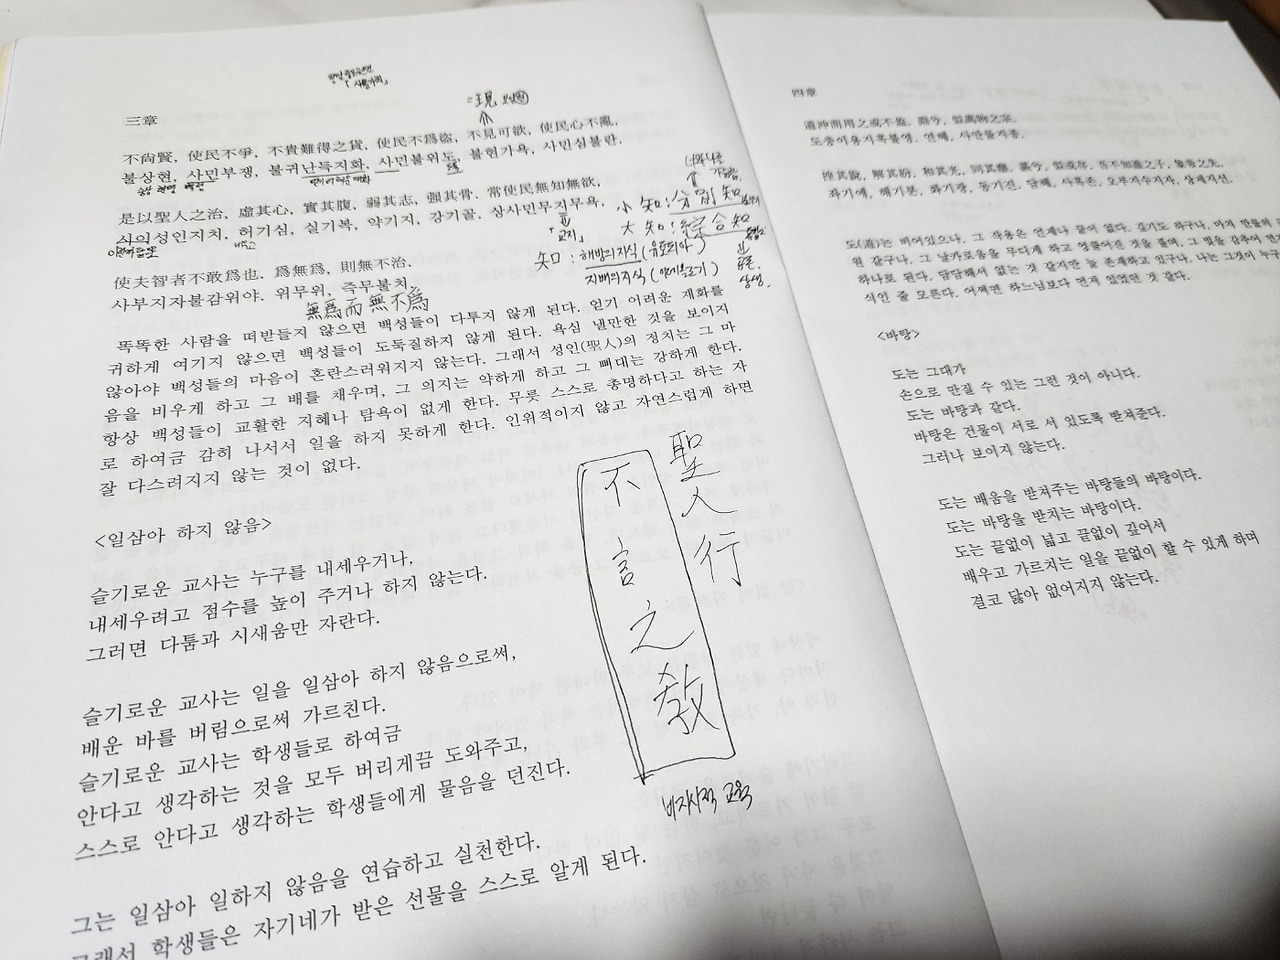 三章
=現
不尙賢, 使民不爭, 不貴難得之貨, 使民不爲盜, 不見可欲, 使民心不亂,
불상현, 사민부쟁, 불귀난득지화, 사민불위도, 불현가욕, 사민심불란.
是以聖人之治, 虛其心, 實其腹, 弱其志, 强其骨. 常使民無知無欲,
시이성인지치, 허기심, 실기복, 약기지, 강기골. 상사민무지무욕,
小 知: 分別知
大 知: 綜合知
知: 해방의지식 (유토피아)
지배의지식 (이데올로기)
상생.
使夫智者不敢爲也. 爲無爲, 則無不治.
사부지자불감위야. 위무위, 즉무불치.
無爲而無不爲
똑똑한 사람을 떠받들지 않으면 백성들이 다투지 않게 된다. 얻기 어려운 재화를
귀하게 여기지 않으면 백성들이 도둑질하지 않게 된다. 욕심 낼만한 것을 보이지
않아야 백성들의 마음이 혼란스러워지지 않는다. 그래서 성인(聖人)의 정치는 그 마
음을 비우게 하고 그 배를 채우며, 그 의지는 약하게 하고 그 뼈대는 강하게 한다.
항상 백성들이 교활한 지혜나 탐욕이 없게 한다. 무릇 스스로 총명하다고 하는 자
로 하여금 감히 나서서 일을 하지 못하게 한다. 인위적이지 않고 자연스럽게 하면
잘 다스려지지 않는 것이 없다.
聖人行
不言之敎
비지시적 교육
<일삼아 하지 않음>
슬기로운 교사는 누구를 내세우거나,
내세우려고 점수를 높이 주거나 하지 않는다.
그러면 다툼과 시새움만 자란다.
슬기로운 교사는 일을 일삼아 하지 않음으로써,
배운 바를 버림으로써 가르친다.
슬기로운 교사는 학생들로 하여금
안다고 생각하는 것을 모두 버리게끔 도와주고,
스스로 안다고 생각하는 학생들에게 물음을 던진다.
그는 일삼아 일하지 않음을 연습하고 실천한다.
그래서 학생들은 자기네가 받은 선물을 스스로 알게 된다.
四章
道沖而用之或不盈. 淵兮, 似萬物之宗.
도충이용지혹불영. 연혜, 사만물지종.
挫其銳, 解其紛, 和其光, 同其塵, 湛兮, 似或存, 吾不知誰之子, 象帝之先.
좌기예, 해기분, 화기광, 동기진, 담혜, 사혹존, 오부지수지자, 상제지선.
도(道)는 비어있으나, 그 작용은 언제나 끝이 없다. 깊기도 하구나, 마치 만물의
원 같구나, 그 날카로움을 무디게 하고 엉클어진 것을 풀며, 그 빛을 감추어
하나로 된다. 담담해서 없는 것 같지만 늘 존재하고 있구나. 나는 그것이 누구
식인 줄 모른다. 어쩌면 하느님보다 먼저 있었던 것 같다.
<바탕>
도는 그대가
손으로 만질 수 있는 그런 것이 아니다.
도는 바탕과 같다.
바탕은 건물이 서로 서 있도록 받쳐준다.
그러나 보이지 않는다.
도는 배움을 받쳐주는 바탕들의 바탕이다.
도는 바탕을 받치는 바탕이다.
도는 끝없이 넓고 끝없이 깊어서
배우고 가르치는 일을 끝없이 할 수 있게 하며
결코 닳아 없어지지 않는다.